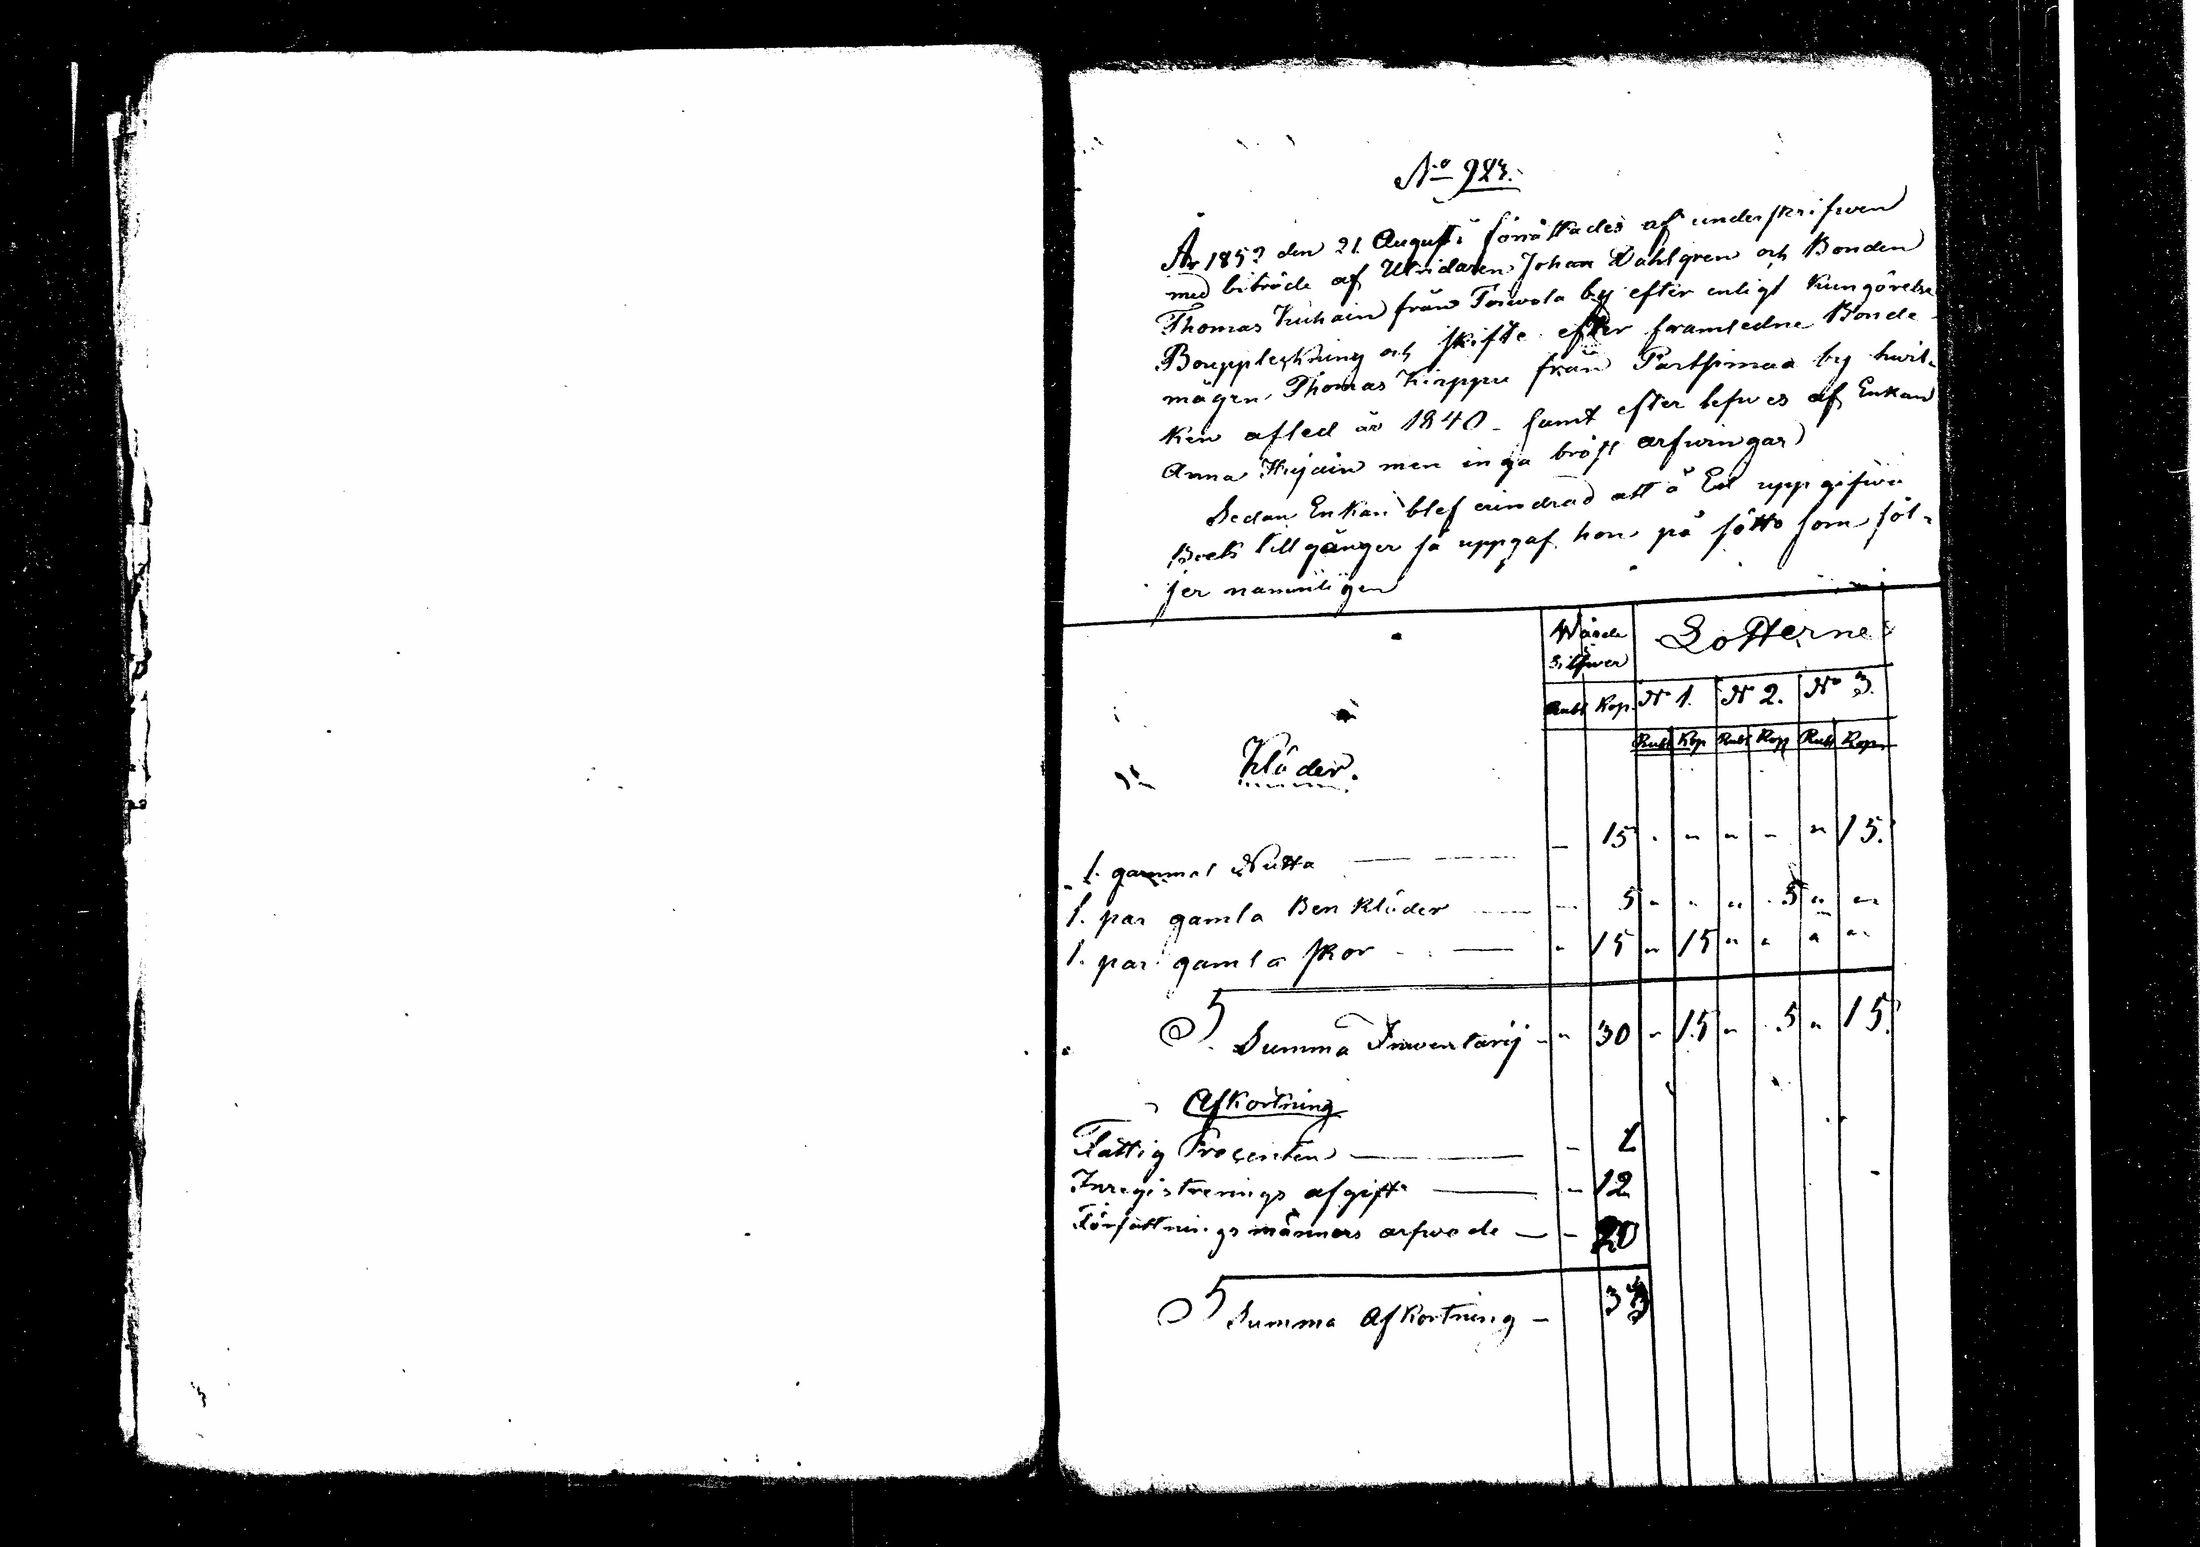 No 923.
År 1853 den 21 Augusti förrättades af underskrifven
med biträde af Utridaren Johan Dahlgren och Bonden
Thomas från by efter enligt Kungörelse
Boupptekning och skifte efter framledne Bonde
mågen Thomas Kirppu från by hvil-
ken afled år 1840 - samt efter lefves af Enkan
Anna men inga bröst arfvingar
Sedan Enkan blef erindrad att å Ed uppgifva
Boets tillgångar så uppgaf hon på sätt som föl-
jer namnligen
Wärde Silfwer Lotterne
Rubl Kop. No 1. No 2. No 3.
Rubl Kop Rubl Kop Rubl Kop
Kläder.
1. gammal Nutta — — - 15 - - - - " 15.
1. par gamla Ben kläder — - 5 " " " 5 " "
1. par gamla skor - — " 15 " 15 " " " "
Summa Inventarij - " 30 " 15 " 5 " 15.
Afkortning
Fattig Procenten — - 1
Inregistrerings afgift — - 12
Författnings männers arfvode — - 20
Summa Afkortning - 33